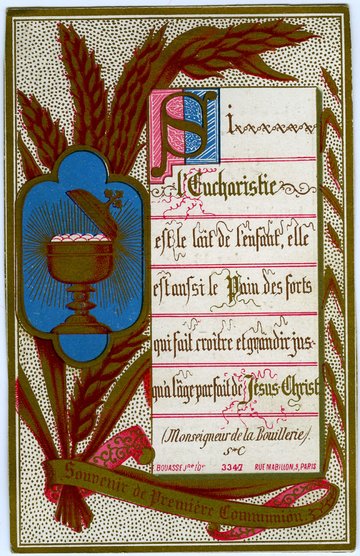 Si
l'Eucharistie
est le lait de l'enfant, elle
est aussi le Pain des forts
qui fait croître et grandir jus-
qu'à l'âge parfait de Jésus Christ
(Monseigneur de la Bouillerie).
BOUASSE Jne 10r 3347 RUE MABILLON, 5, PARIS
Souvenir de Première Communion